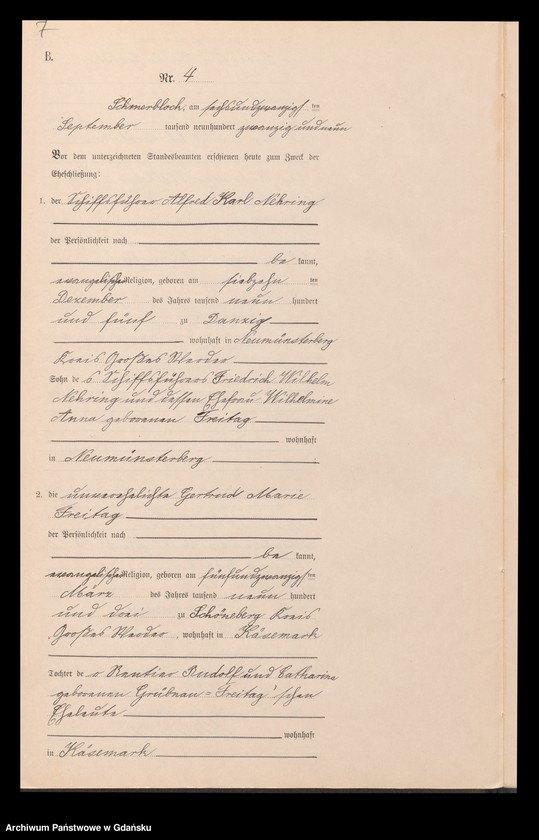 7
B.
Nr. 4
Schmerbloch, am sechsundzwanzigsten
September tausend neunhundert zwanzig und neun
Vor dem unterzeichneten Standesbeamten erschienen heute zum Zweck der
Eheschließung:
1. der Schiffsführer Alfred Karl Nehring
der Persönlichkeit nach
be kannt,
evangelischer Religion, geboren am siebzehn ten
Dezember des Jahres tausend neun hundert
und fünf zu Danzig
wohnhaft in Neumünsterberg
Kreis Großes Werder
Sohn de s Schiffsführers Friedrich Wilhelm
Nehring und dessen Ehefrau Wilhelmine
Anna geborenen Freitag
wohnhaft
in Neumünsterberg .
2. die unverehelichte Gertrud Marie
Freitag
der Persönlichkeit nach
be kannt,
evangelischer Religion, geboren am fünfundzwanzigsten
März des Jahres tausend neun hundert
und drei zu Schöneberg Kreis
Großes Werder, wohnhaft in Käsemark
Tochter de r Rentier Rudolf und Catharine
geborenen Grübnau = Freitag'schen
Eheleute
wohnhaft
in Käsemark
Archiwum Państwowe w Gdańsku